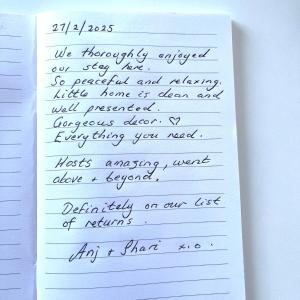 27/2/2025
We thoroughly enjoyed
our stay here.
So peaceful and relaxing.
Little home is clean and
well presented.
Gorgeous decor. ♡
Everything you need.
Hosts amazing, went
above + beyond.
Definitely on our list
of returns.
Anj + Shari x.o.